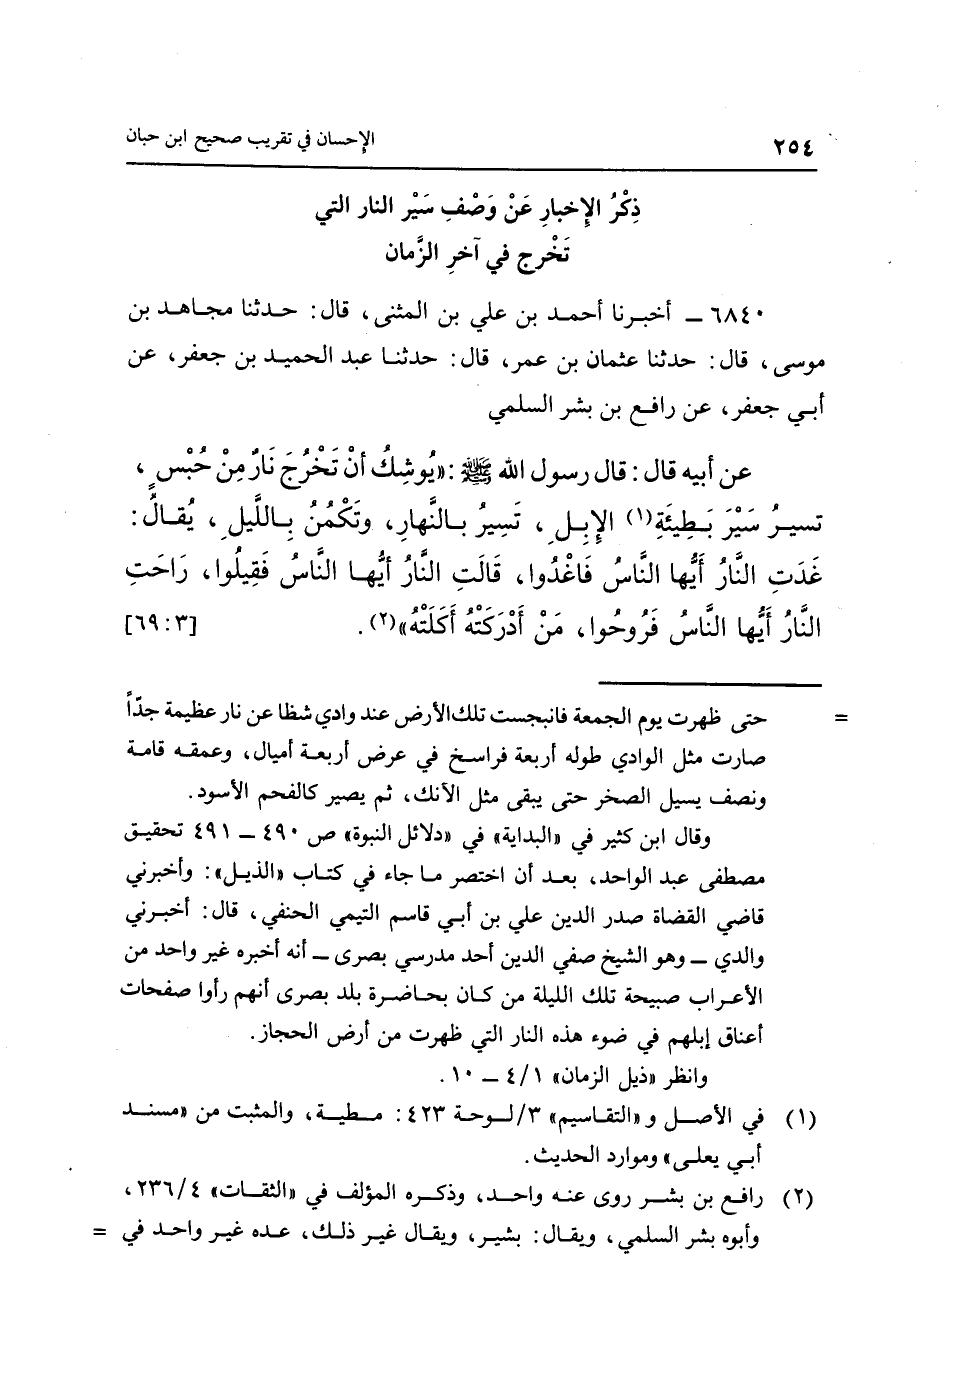 ٢٥٤ الإحسان في تقريب صحيح ابن حبان
ذِكْرُ الإِخبارِ عَنْ وَصْفِ سَيْر النار التي
تَخْرج في آخرِ الزَّمان
٦٨٤٠ ــ أخبرنا أحمد بن علي بن المثنى، قال: حدثنا مجاهد بن
موسى، قال: حدثنا عثمان بن عمر، قال: حدثنا عبد الحميد بن جعفر، عن
أبي جعفر، عن رافع بن بشر السلمي
عن أبيه قال: قال رسول الله ﷺ: «يُوشِكُ أنْ تَخْرُجَ نَارٌ مِنْ حُبْسٍ،
تسيرُ سَيْرَ بَطِيئَةِ(١) الإِبلِ، تَسِيرُ بالنَّهارِ، وتَكْمُنُ بِاللَّيلِ، يُقالُ:
غَدَتِ النَّارُ أَيُّها النَّاسُ فَاغْدُوا، قَالَتِ النَّارُ أيُّها النَّاسُ فَقِيلُوا، رَاحَتِ
النَّارُ أَيُّها النَّاسُ فَرُوحُوا، مَنْ أَدْرَكَتْهُ أَكَلَتْهُ»(٢). [٦٩:٣]
= حتى ظهرت يوم الجمعة فانبجست تلك الأرض عند وادي شظا عن نار عظيمة جدّاً
صارت مثل الوادي طوله أربعة فراسخ في عرض أربعة أميال، وعمقه قامة
ونصف يسيل الصخر حتى يبقى مثل الآنك، ثم يصير كالفحم الأسود.
وقال ابن كثير في «البداية» في «دلائل النبوة» ص ٤٩٠ ــ ٤٩١ تحقيق
مصطفى عبد الواحد، بعد أن اختصر ما جاء في كتاب «الذيل»: وأخبرني
قاضي القضاة صدر الدين علي بن أبي قاسم التيمي الحنفي، قال: أخبرني
والدي ــ وهو الشيخ صفي الدين أحد مدرسي بصرى ــ أنه أخبره غير واحد من
الأعراب صبيحة تلك الليلة من كان بحاضرة بلد بصرى أنهم رأوا صفحات
أعناق إبلهم في ضوء هذه النار التي ظهرت من أرض الحجاز.
وانظر «ذيل الزمان» ٤/١ ــ ١٠.
(١) في الأصل و «التقاسيم» ٣/لوحة ٤٢٣: مطية، والمثبت من «مسند
أبي يعلى» وموارد الحديث.
(٢) رافع بن بشر روى عنه واحد، وذكره المؤلف في «الثقات» ٢٣٦/٤،
وأبوه بشر السلمي، ويقال: بشير، ويقال غير ذلك، عده غير واحد في =